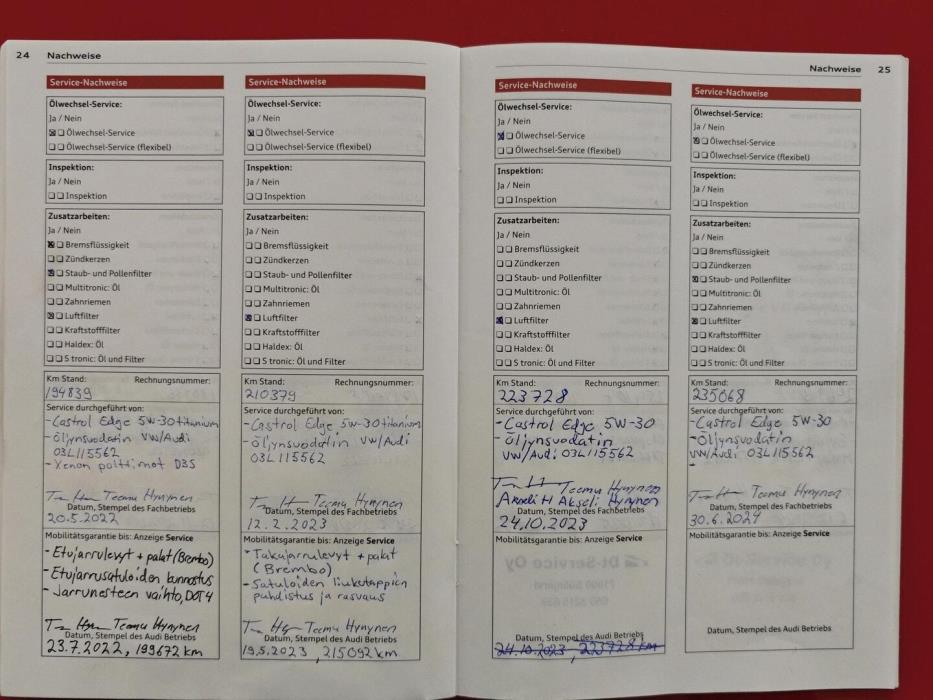 24 Nachweise
Service-Nachweise
Ölwechsel-Service:
Ja / Nein
Ölwechsel-Service
Ölwechsel-Service (flexibel)
Inspektion:
Ja / Nein
Inspektion
Zusatzarbeiten:
Ja / Nein
Bremsflüssigkeit
Zündkerzen
Staub- und Pollenfilter
Multitronic: Öl
Zahnriemen
Luftfilter
Kraftstofffilter
Haldex: Öl
S tronic: Öl und Filter
Km Stand: Rechnungsnummer:
194839
Service durchgeführt von:
- Castrol Edge 5W-30 titanium
- Öljynsuodatin VW/Audi
03L115562
- Xenon polttimot D3S
Teemu Hynynen
Datum, Stempel des Fachbetriebs
20.5.2022
Mobilitätsgarantie bis: Anzeige Service
- Etujarrulevyt + palat (Brembo)
- Etujarrusatuloiden kunnostus
- Jarrunesteen vaihto, DOT4
Teemu Hynynen
Datum, Stempel des Audi Betriebs
23.7.2022, 199672 km
Service-Nachweise
Ölwechsel-Service:
Ja / Nein
Ölwechsel-Service
Ölwechsel-Service (flexibel)
Inspektion:
Ja / Nein
Inspektion
Zusatzarbeiten:
Ja / Nein
Bremsflüssigkeit
Zündkerzen
Staub- und Pollenfilter
Multitronic: Öl
Zahnriemen
Luftfilter
Kraftstofffilter
Haldex: Öl
S tronic: Öl und Filter
Km Stand: Rechnungsnummer:
210379
Service durchgeführt von:
- Castrol Edge 5W-30 titanium
- Öljynsuodatin VW/Audi
03L115562
Teemu Hynynen
Datum, Stempel des Fachbetriebs
12.2.2023
Mobilitätsgarantie bis: Anzeige Service
- Takajarrulevyt + palat
(Brembo)
- Satuloiden liukutappien
puhdistus ja rasvaus
Teemu Hynynen
Datum, Stempel des Audi Betriebs
19.5.2023, 215092 km
Nachweise 25
Service-Nachweise
Ölwechsel-Service:
Ja / Nein
Ölwechsel-Service
Ölwechsel-Service (flexibel)
Inspektion:
Ja / Nein
Inspektion
Zusatzarbeiten:
Ja / Nein
Bremsflüssigkeit
Zündkerzen
Staub- und Pollenfilter
Multitronic: Öl
Zahnriemen
Luftfilter
Kraftstofffilter
Haldex: Öl
S tronic: Öl und Filter
Km Stand: Rechnungsnummer:
223728
Service durchgeführt von:
- Castrol Edge 5W-30
- Öljynsuodatin
VW/Audi 03L115562
Teemu Hynynen
Akseli H Akseli Hynynen
Datum, Stempel des Fachbetriebs
24.10.2023
Mobilitätsgarantie bis: Anzeige Service
Datum, Stempel des Audi Betriebs
24.10.2023, 223728 km
Service-Nachweise
Ölwechsel-Service:
Ja / Nein
Ölwechsel-Service
Ölwechsel-Service (flexibel)
Inspektion:
Ja / Nein
Inspektion
Zusatzarbeiten:
Ja / Nein
Bremsflüssigkeit
Zündkerzen
Staub- und Pollenfilter
Multitronic: Öl
Zahnriemen
Luftfilter
Kraftstofffilter
Haldex: Öl
S tronic: Öl und Filter
Km Stand: Rechnungsnummer:
235068
Service durchgeführt von:
- Castrol Edge 5W-30
- Öljynsuodatin
VW/Audi 03L115562
-
Teemu Hynynen
Datum, Stempel des Fachbetriebs
30.6.2024
Mobilitätsgarantie bis: Anzeige Service
Datum, Stempel des Audi Betriebs